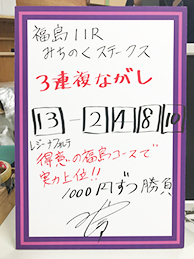 福島11R
みちのくステークス
3連複ながし
13-2 4 8 10
レジーナフォルテ
得意の福島コースで
実力上位!!
1000円ずつ勝負